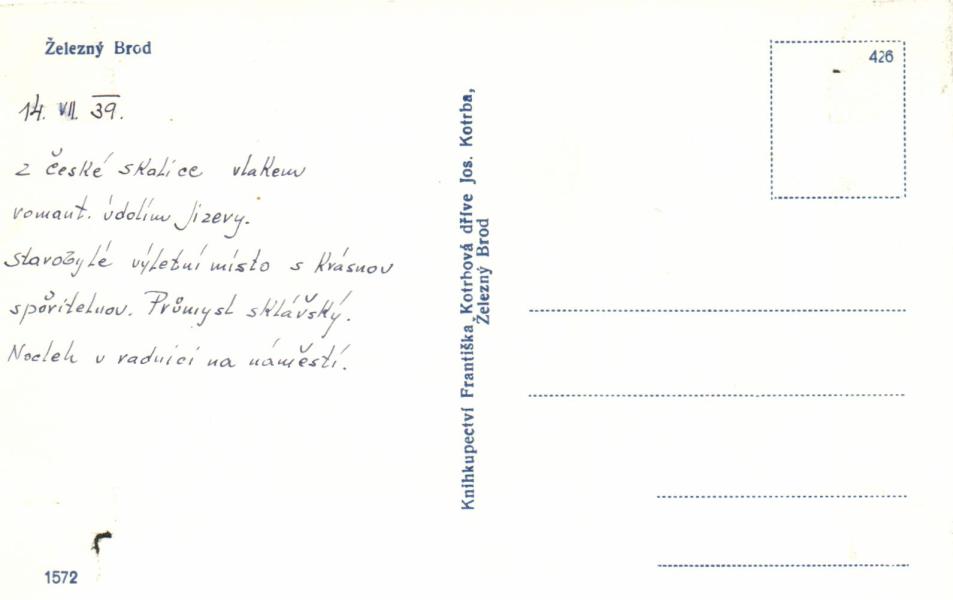 Železný Brod
14. VII. 39.
z české skalice vlakem
romant. údolím Jizery.
Starobylé výletní místo s krásnou
spořitelnou. Průmysl sklářský.
Nocleh v radnici na náměstí.
1572
Knihkupectví Františka Kotrbová dříve Jos. Kotrba,
Železný Brod
426